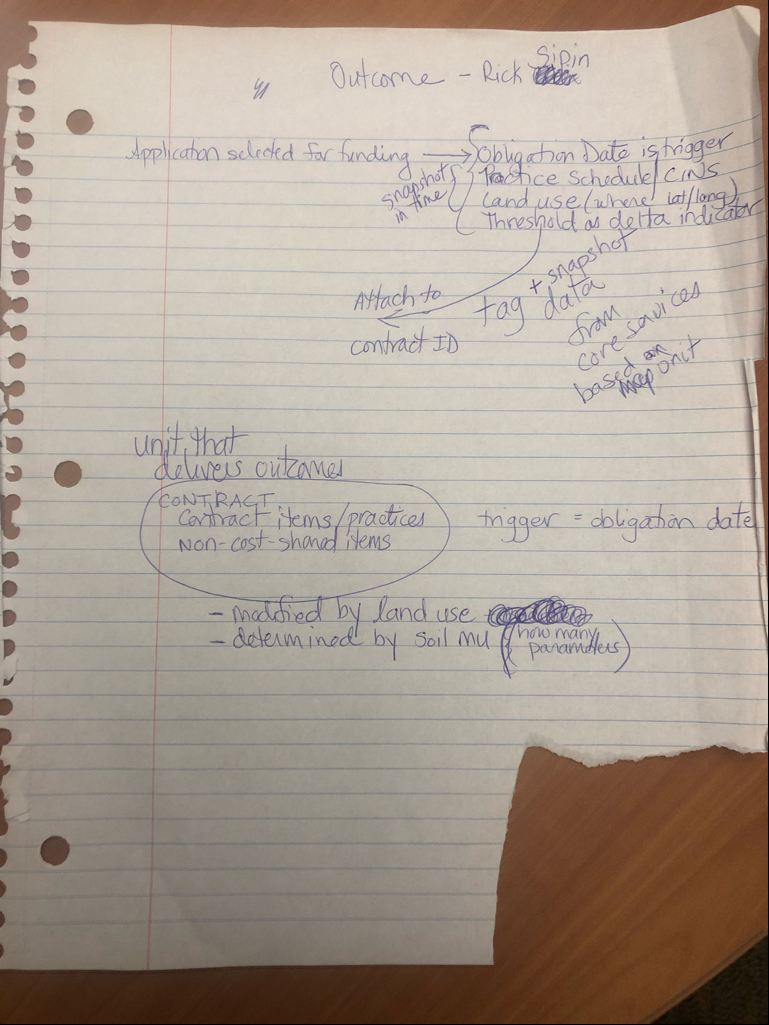 Outcome - Rick Sipin
Application selected for funding → Obligation Date is trigger
snapshot in time
Practice Schedule/CINS
Land use (where lat/long)
Threshold as delta indicator
Attach to
contract ID
tag + snapshot
data
from
core services
based on
map unit
unit that
delivers outcomes
CONTRACT
Contract items/practices
Non-cost-shared items
trigger = obligation date
- modified by land use
- determined by soil mu (how many
parameters)